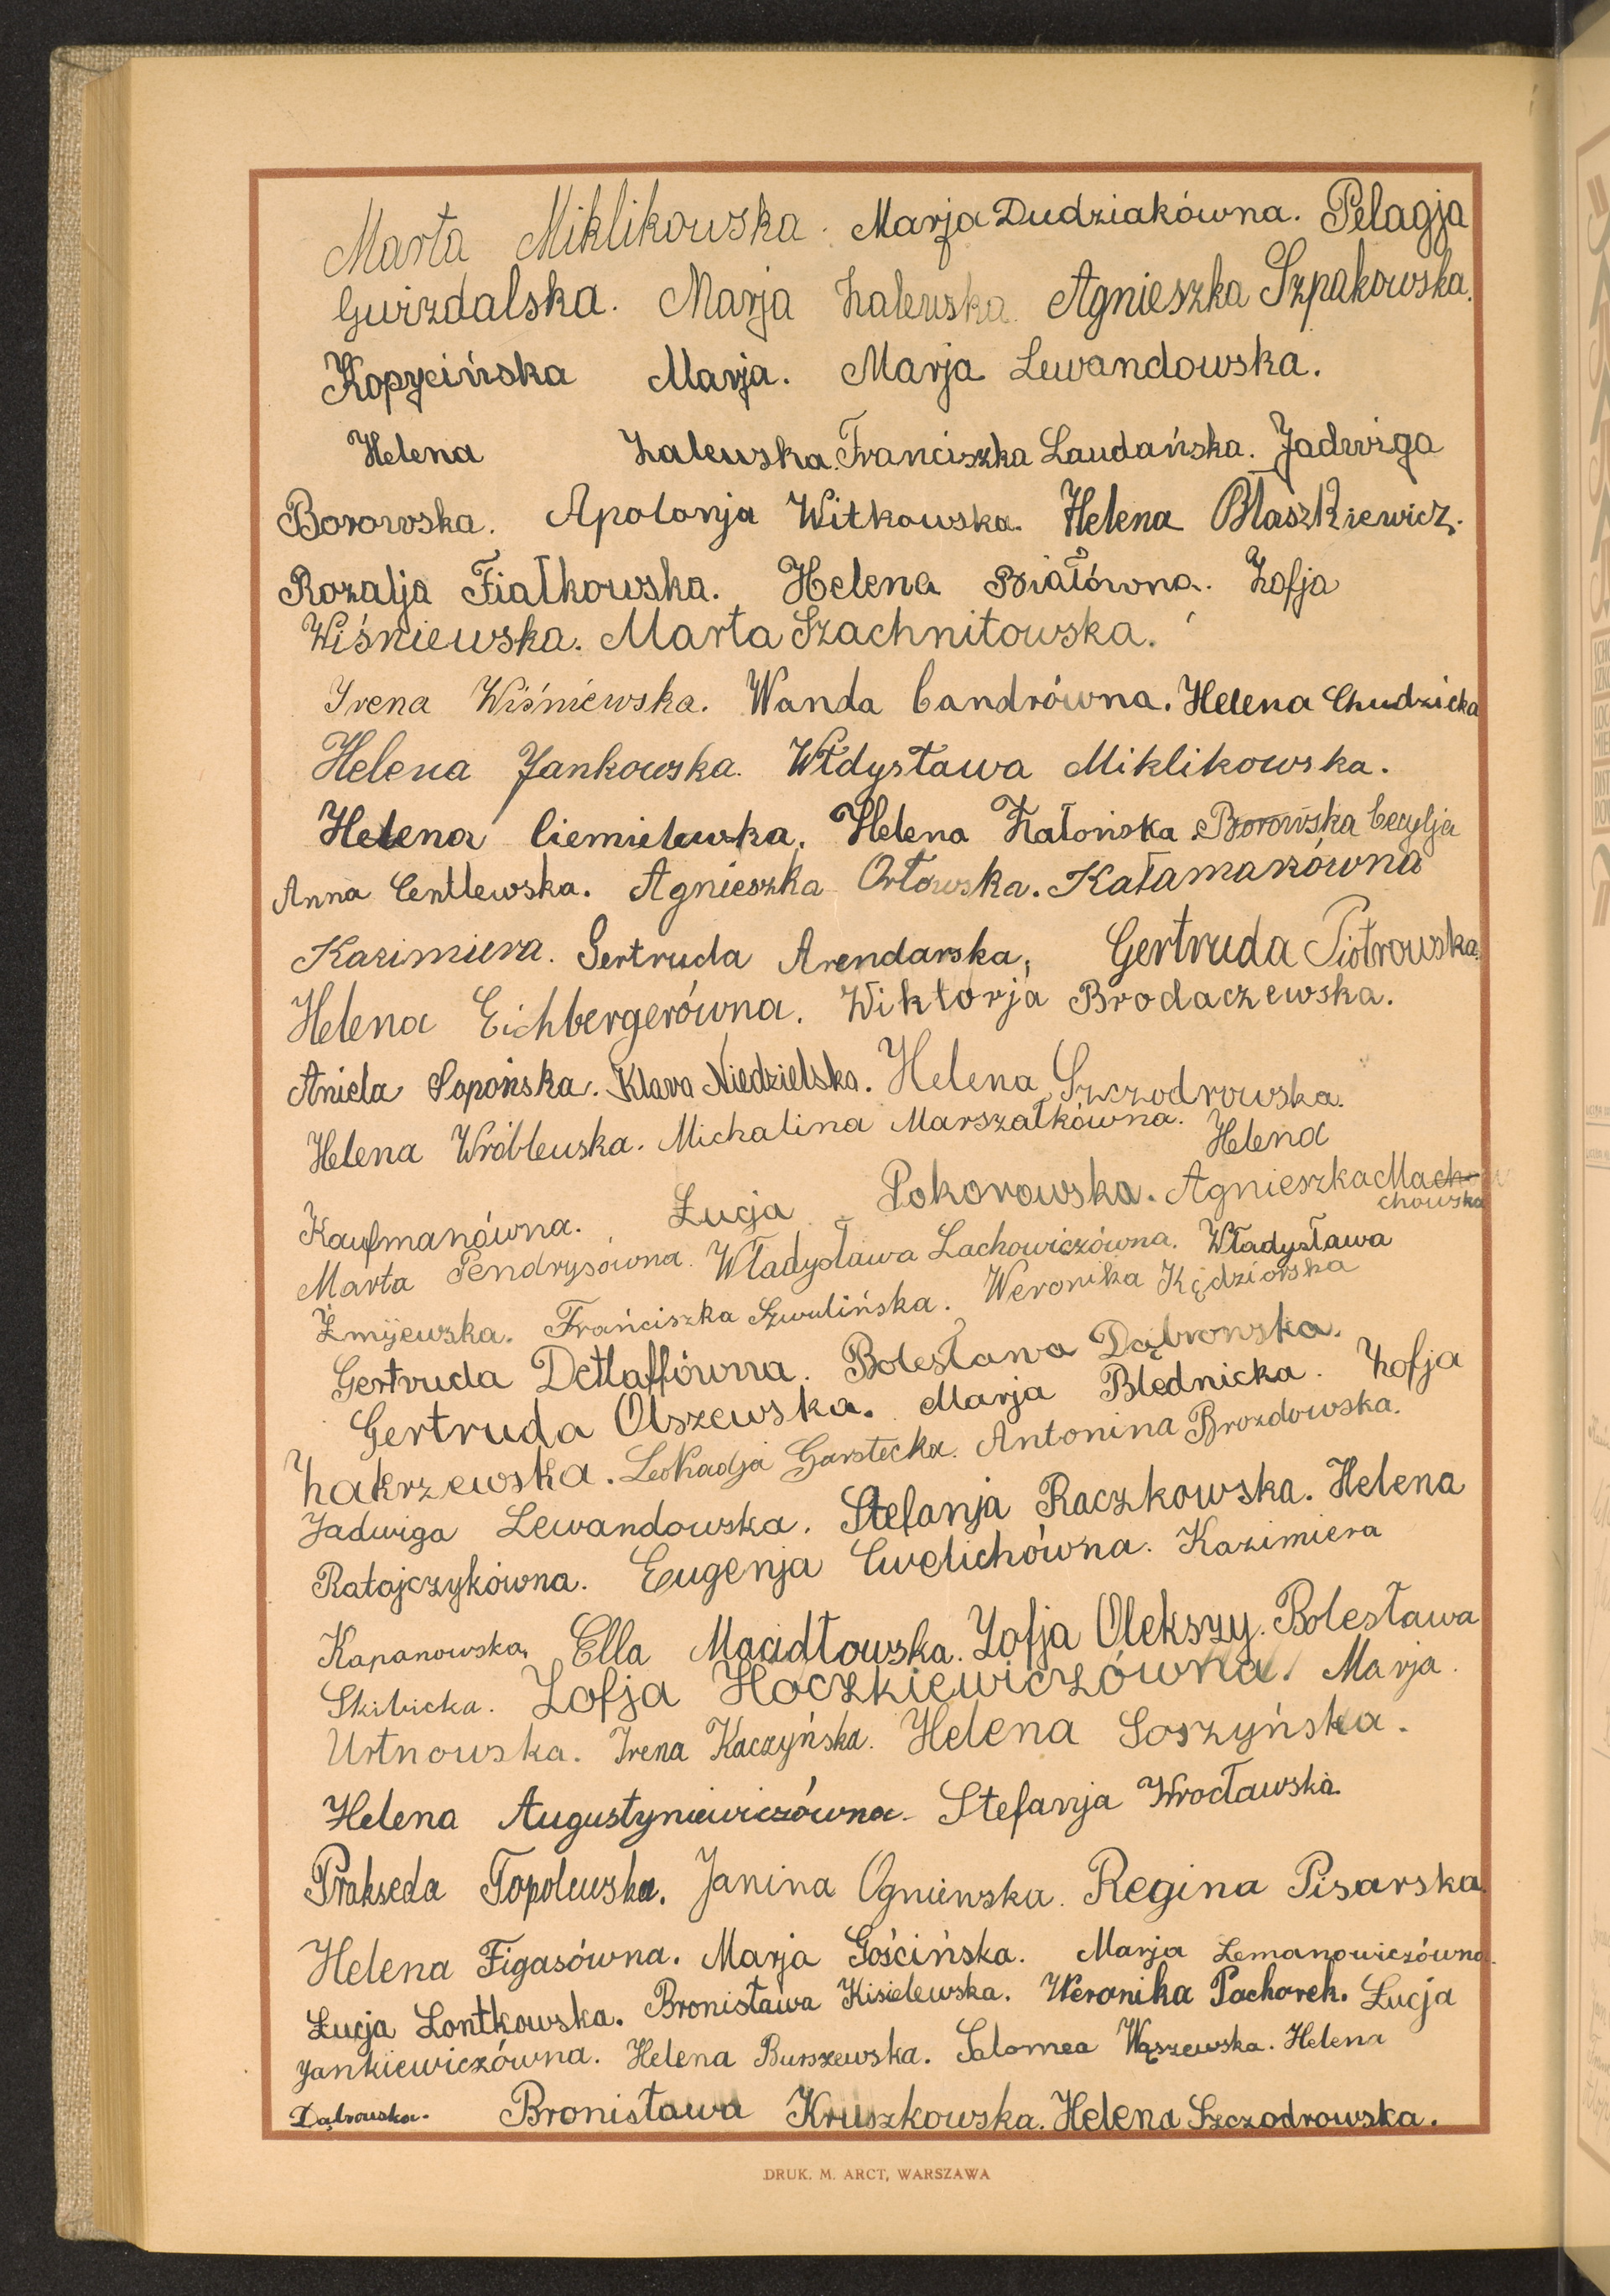 Marta Miklikowska. Marja Dudziakówna. Pelagja
Gwizdalska. Marja Zalewska. Agnieszka Szpakowska.
Kopycińska Marja. Marja Lewandowska.
Helena Zalewska. Franciszka Laudańska. Jadwiga
Borowska. Apolonja Witkowska. Helena Błaszkiewicz.
Rozalja Fiałkowska. Helena Białówna. Zofja
Wiśniewska. Marta Szachnitowska.
Irena Wiśniewska. Wanda Candrówna. Helena Chudzicka
Helena Jankowska. Włdysława Miklikowska.
Helena Ciemielewska. Helena Załońska. Borowska Cecylja
Anna Centlewska. Agnieszka Orłowska. Kałamarzówna
Kazimiera. Gertruda Arendarska, Gertruda Piotrowska.
Helena Eichbergerówna. Wiktorja Brodaczewska.
Aniela Sapońska. Klara Niedzielska. Helena Szczodrowska.
Helena Wróblewska. Michalina Marszałkówna. Helena
Kaufmanówna. Łucja Pokorowska. Agnieszka Macho
chowska
Marta Pendrysówna. Władysława Lachowiczówna. Władysława
Żmijewska. Frańciszka Szwulińska. Weronika Kędziorska
Gertruda Detlaffówna. Bolesława Dąbrowska.
Gertruda Olszewska. Marja Blednicka. Zofja
Zakrzewska. Leokadja Garstecka. Antonina Brozdowska.
Jadwiga Lewandowska. Stefanja Raczkowska. Helena
Ratajczykówna. Eugenja Cwelichówna. Kazimiera
Kapanowska. Ella Macidłowska. Zofja Olekszy. Bolesława
Skibicka. Zofja Hoczkiewiczówna. Marja
Urtnowska. Irena Kaczyńska. Helena Soszyńska.
Helena Augustyniewiczówna. Stefanja Wrocławska.
Prakseda Topolewska. Janina Ogniewska. Regina Pisarska.
Helena Figasówna. Marja Gościńska. Marja Lemanowiczówna.
Łucja Lontkowska. Bronisława Kisielewska. Weronika Pachorek. Łucja
Jankiewiczówna. Helena Burszewska. Salomea Wąszewska. Helena
Dąbrowska. Bronisława Kruszkowska. Helena Szczodrowska.
DRUK. M. ARCT, WARSZAWA